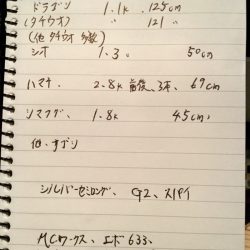 ドラゴン 1.1k 125cm
(タチウオ) 〃 121 〃
(他 タチウオ 多数)
シオ 1.3〃 50cm
ハマチ. 2.8k 前後、3本、69cm
ソマガツ、1.8k 45cm、
他、サゴシ
シルバーセミロング、G2、スパイ
MCワークス、エボ 633、